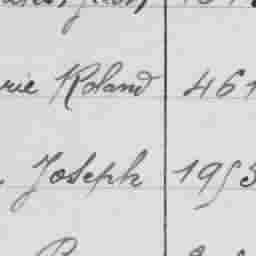 rie Roland 461
Joseph 1953